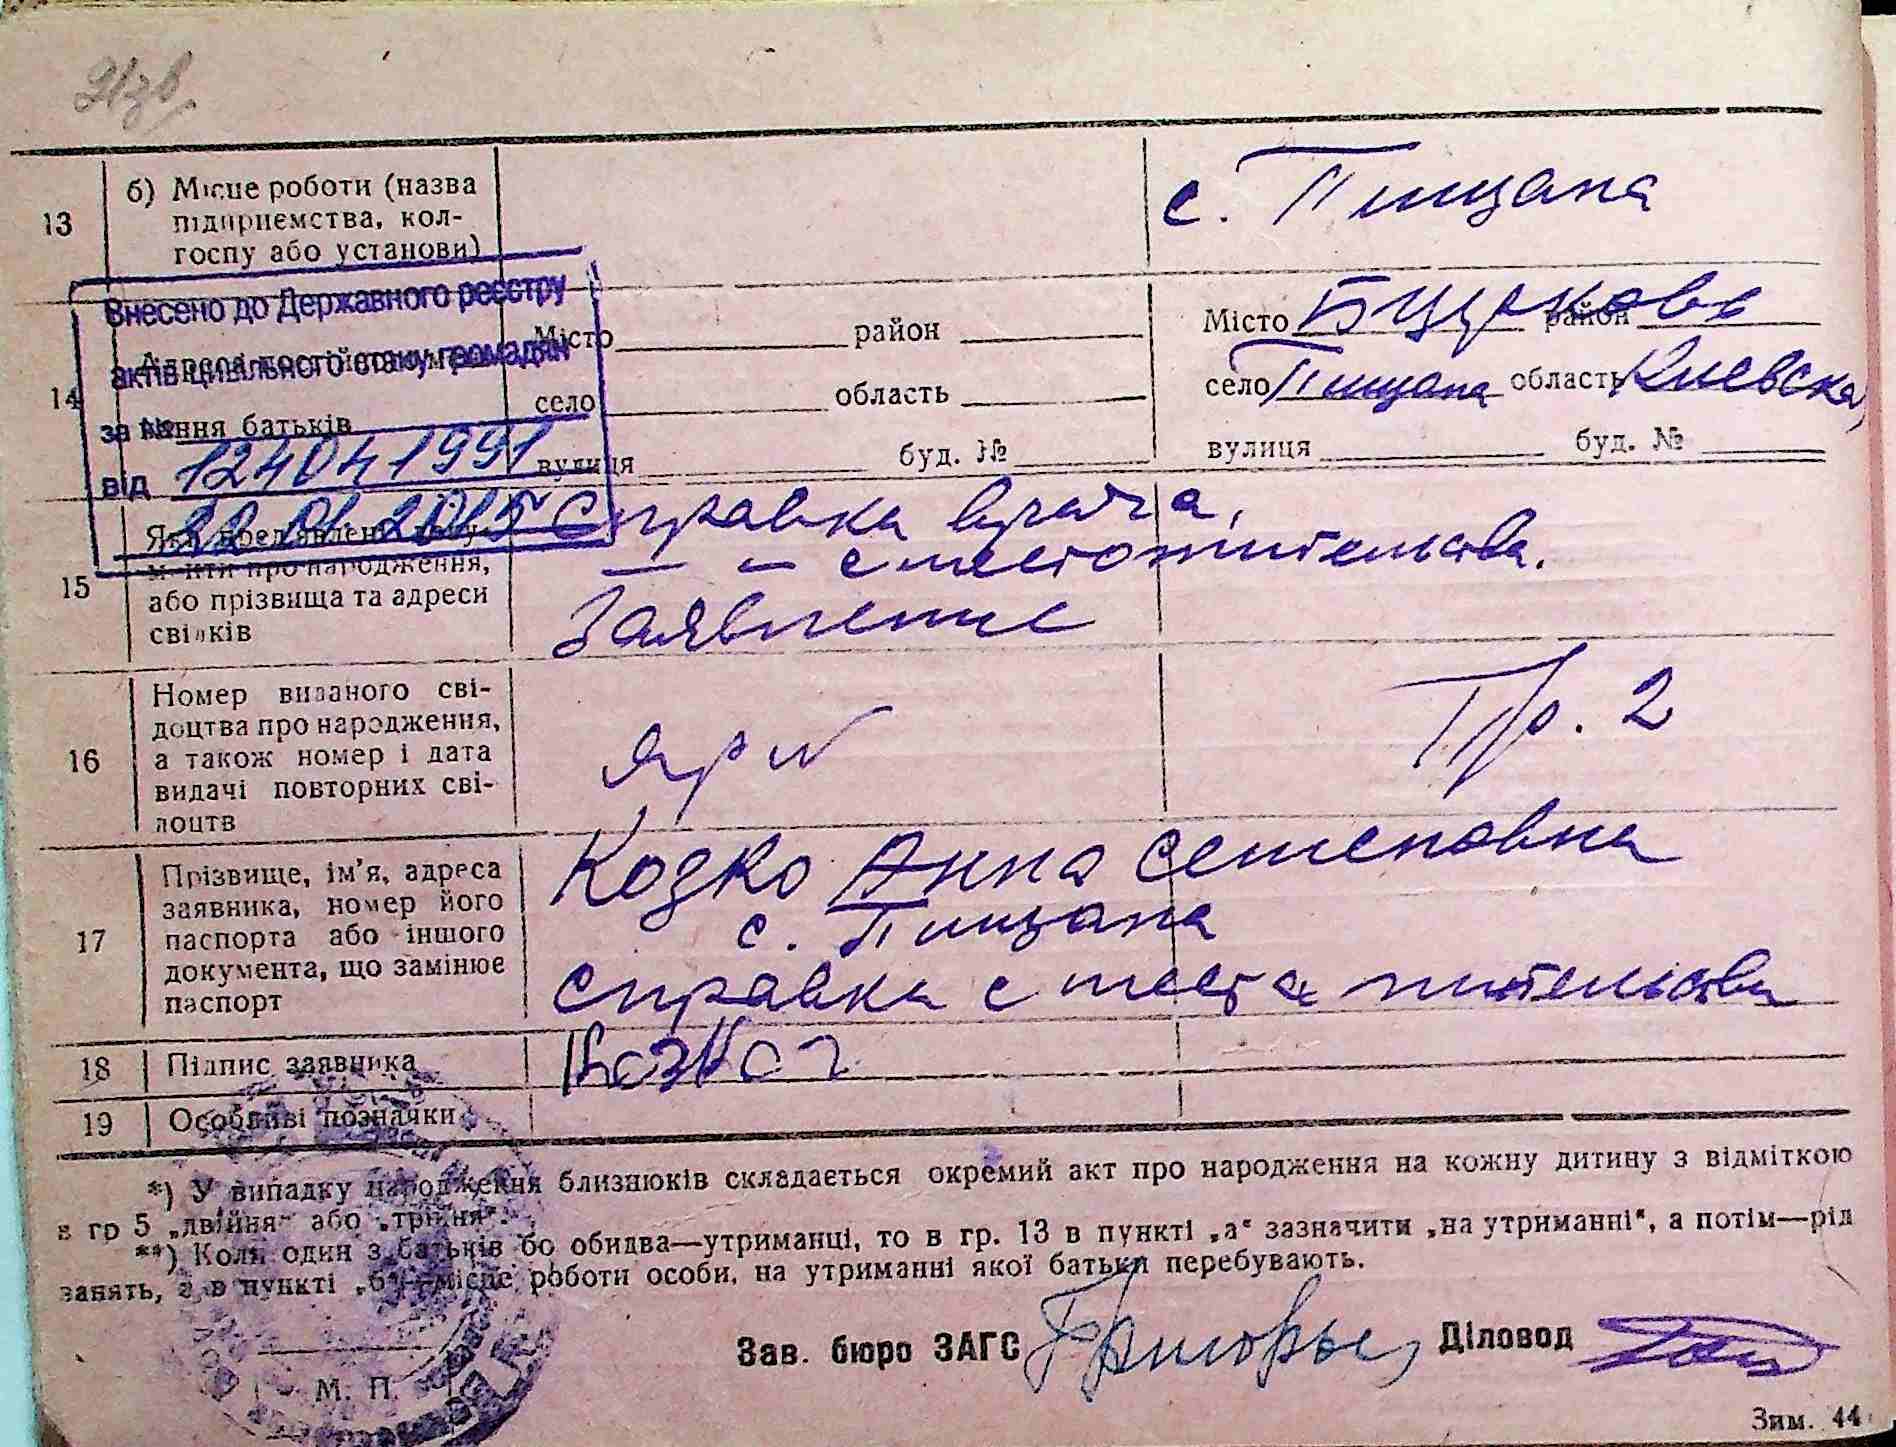 13
б) Місце роботи (назва
підприємства, кол-
госпу або установи)
с. Пищана
Внесено до Державного реєстру
актів цивільного стану громадян
за №
від 124041991
22 01 2015
14
Місто район
село область
вулиця буд. №
Місто район
село Пищана область Киевска
вулиця буд. №
15
менти про народження,
або прізвища та адреси
свідків
Справка врача,
— " — с местожительства.
Заявление
16
Номер виданого сві-
доцтва про народження,
а також номер і дата
видачі повторних сві-
доцтв
Пр. 2
17
Прізвище, ім'я, адреса
заявника, номер його
паспорта або іншого
документа, що замінює
паспорт
Козко Анна Семеновна
с. Пищана
справка с места жительства
18
Підпис заявника
19
Особливі позначки
*) У випадку народження близнюків складається окремий акт про народження на кожну дитину з відміткою
в гр 5 „двійня" або „трійня".
**) Коли один з батьків бо обидва—утриманці, то в гр. 13 в пункті „а" зазначити „на утриманні", а потім—рід
занять, а в пункті „б"—місце роботи особи, на утриманні якої батьки перебувають.
Зав. бюро ЗАГС
Діловод
М. П.
Зим. 44